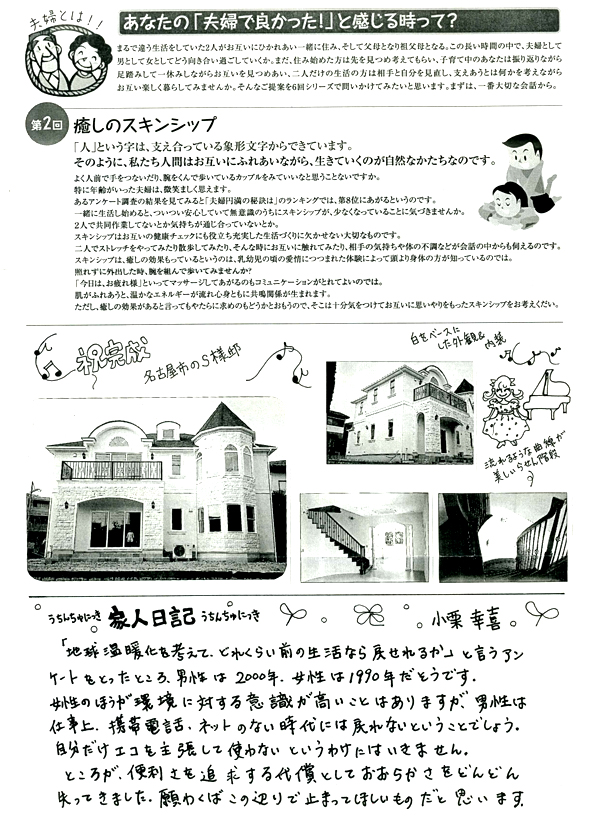 夫婦とは!!
あなたの「夫婦で良かった!」と感じる時って?
まるで違う生活をしていた2人がお互いにひかれあい一緒に住み、そして父母となり祖父母となる。この長い時間の中で、夫婦として
男として女としてどう向き合い過ごしていくか。まだ、住み始めた方は先を見つめ考えてもらい、子育て中のあなたは振り返りながら
足踏みして一休みしながらお互いを見つめあい、二人だけの生活の方は相手と自分を見直し、支えあうとは何かを考えながら
お互い楽しく暮らしてみませんか。そんなご提案を6回シリーズで問いかけてみたいと思います。まずは、一番大切な会話から。
第2回 癒しのスキンシップ
「人」という字は、支え合っている象形文字からできています。
そのように、私たち人間はお互いにふれあいながら、生きていくのが自然なかたちなのです。
よく人前で手をつないだり、腕をくんで歩いているカップルをみていいなと思うことないですか。
特に年齢がいった夫婦は、微笑ましく思えます。
あるアンケート調査の結果を見てみると「夫婦円満の秘訣は」のランキングでは、第8位にあがるというのです。
一緒に生活し始めると、ついつい安心していて無意識のうちにスキンシップが、少なくなっていることに気づきませんか。
2人で共同作業してないとか気持ちが通じ合っていないとか。
スキンシップはお互いの健康チェックにも役立ち充実した生活づくりに欠かせない大切なものです。
二人でストレッチをやってみたり散歩してみたり、そんな時にお互いに触れてみたり、相手の気持ちや体の不調などが会話の中からも伺えるのです。
スキンシップは、癒しの効果もっているというのは、乳幼児の頃の愛情につつまれた体験によって頭より身体の方が知っているのでは。
照れずに外出した時、腕を組んで歩いてみませんか?
「今日は、お疲れ様」といってマッサージしてあがるのもコミュニケーションがとれてよいのでは。
肌がふれあうと、温かなエネルギーが流れ心身ともに共鳴関係が生まれます。
ただし、癒しの効果があると言ってもやたらに求めのもどうかとおもうので、そこは十分気をつけてお互いに思いやりをもったスキンシップをお考えください。
祝完成
名古屋市のS様邸
白をベースに
した外観&内装
流れるような曲線が
美しいらせん階段
うちんちゅにっき 家人日記 うちんちゅにっき 小栗 幸喜
「地球温暖化を考えて、どれくらい前の生活なら戻せれるか」と言うアン
ケートをとったところ、男性は2000年、女性は1990年だそうです。
女性のほうが環境に対する意識が高いことはありますが、男性は
仕事上、携帯電話、ネットのない時代には戻れないということでしょう。
自分だけエコを主張して使わないというわけにはいきません。
ところが、便利さを追求する代償としておおらかさをどんどん
失ってきました。願わくばこの辺りで止まってほしいものだと思います。